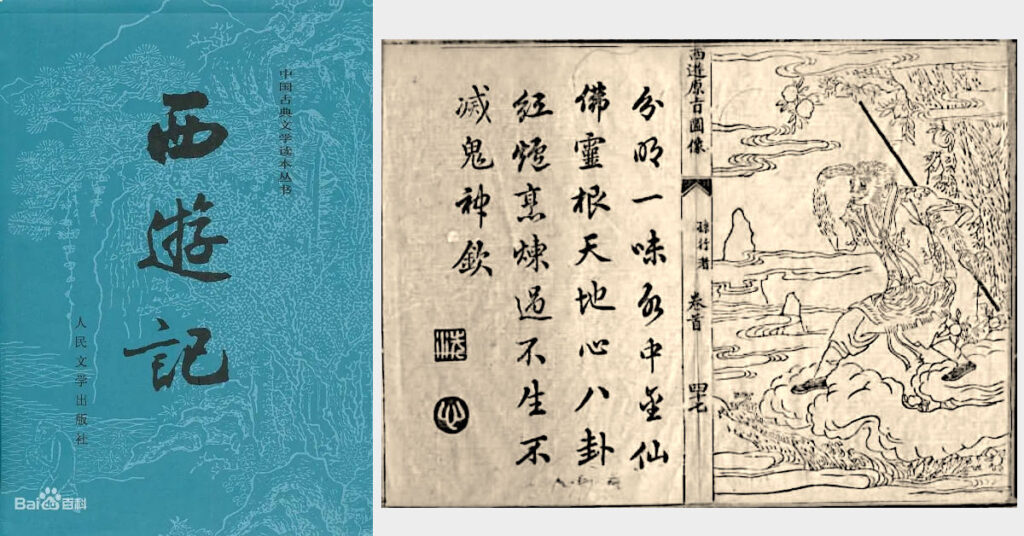 中国古典文学读本丛书
西遊記
人民文学出版社
Bai百科
西遊原旨圖像
孫行者
卷首
四十七
分明一味水中金仙
佛靈根天地心八卦
紅爐烹煉過不生不
滅鬼神欽